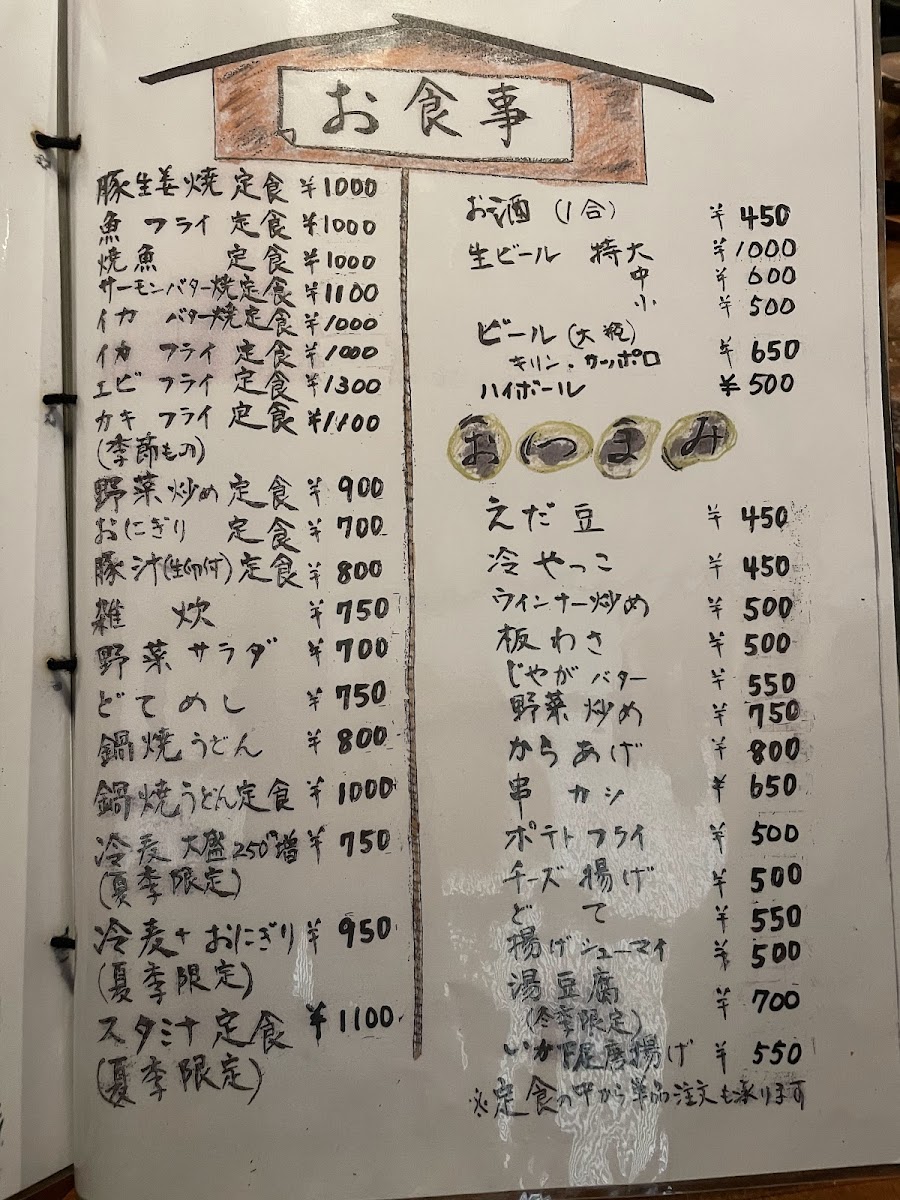 お食事
豚生姜焼定食 ¥1000
魚フライ定食 ¥1000
焼魚 定食 ¥1000
サーモンバター焼定食 ¥1100
イカ バター焼定食 ¥1000
イカ フライ 定食 ¥1000
エビ フライ 定食 ¥1300
カキ フライ 定食 ¥1100
(季節もの)
野菜炒め定食 ¥900
おにぎり 定食 ¥700
豚汁(生卵付)定食 ¥800
雑炊 ¥750
野菜サラダ ¥700
どてめし ¥750
鍋焼うどん ¥800
鍋焼うどん定食 ¥1000
冷麦 大盛250円増 ¥750
(夏季限定)
冷麦+おにぎり ¥950
(夏季限定)
スタミナ定食 ¥1100
(夏季限定)
お酒(1合) ¥450
生ビール 特大 ¥1000
中 ¥600
小 ¥500
ビール(大瓶)
キリン・サッポロ ¥650
ハイボール ¥500
おつまみ
えだ豆 ¥450
冷やっこ ¥450
ウィンナー炒め ¥500
板わさ ¥500
じゃがバター ¥550
野菜炒め ¥750
からあげ ¥800
串カツ ¥650
ポテトフライ ¥500
チーズ揚げ ¥500
どて ¥550
揚げシューマイ ¥500
湯豆腐 ¥700
(冬季限定)
いか下足唐揚げ ¥550
※定食の中から単品注文も承ります